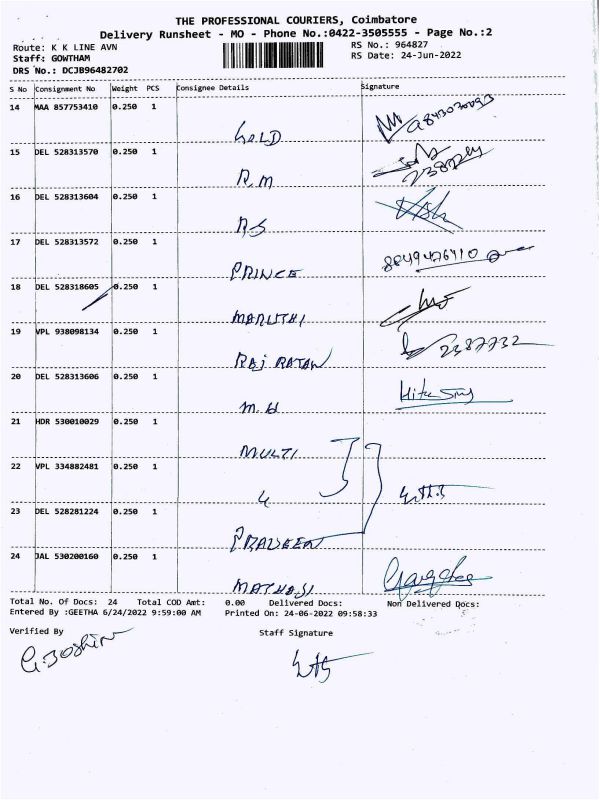 THE PROFESSIONAL COURIERS, Coimbatore
Delivery Runsheet - MO - Phone No.:0422-3505555 - Page No.:2
Route: K K LINE AVN RS No.: 964827
Staff: GOWTHAM RS Date: 24-Jun-2022
DRS No.: DCJB96482702
S No Consignment No Weight PCS Consignee Details Signature
14 MAA 857753410 0.250 1
GOLD
15 DEL 528313570 0.250 1
R.M
16 DEL 528313604 0.250 1
RS
17 DEL 528313572 0.250 1
PRINCE 8849476410
18 DEL 528318605 0.250 1
MARUTHI
19 VPL 938098134 0.250 1
RAJ RATAN 2387732
20 DEL 528313606 0.250 1
M.H
21 HDR 530010029 0.250 1
MULTI
22 VPL 334882481 0.250 1
23 DEL 528281224 0.250 1
PRAVEEN
24 JAL 530200160 0.250 1
Total No. Of Docs: 24 Total COD Amt: 0.00 Delivered Docs: Non Delivered Docs:
Entered By :GEETHA 6/24/2022 9:59:00 AM Printed On: 24-06-2022 09:58:33
Verified By Staff Signature